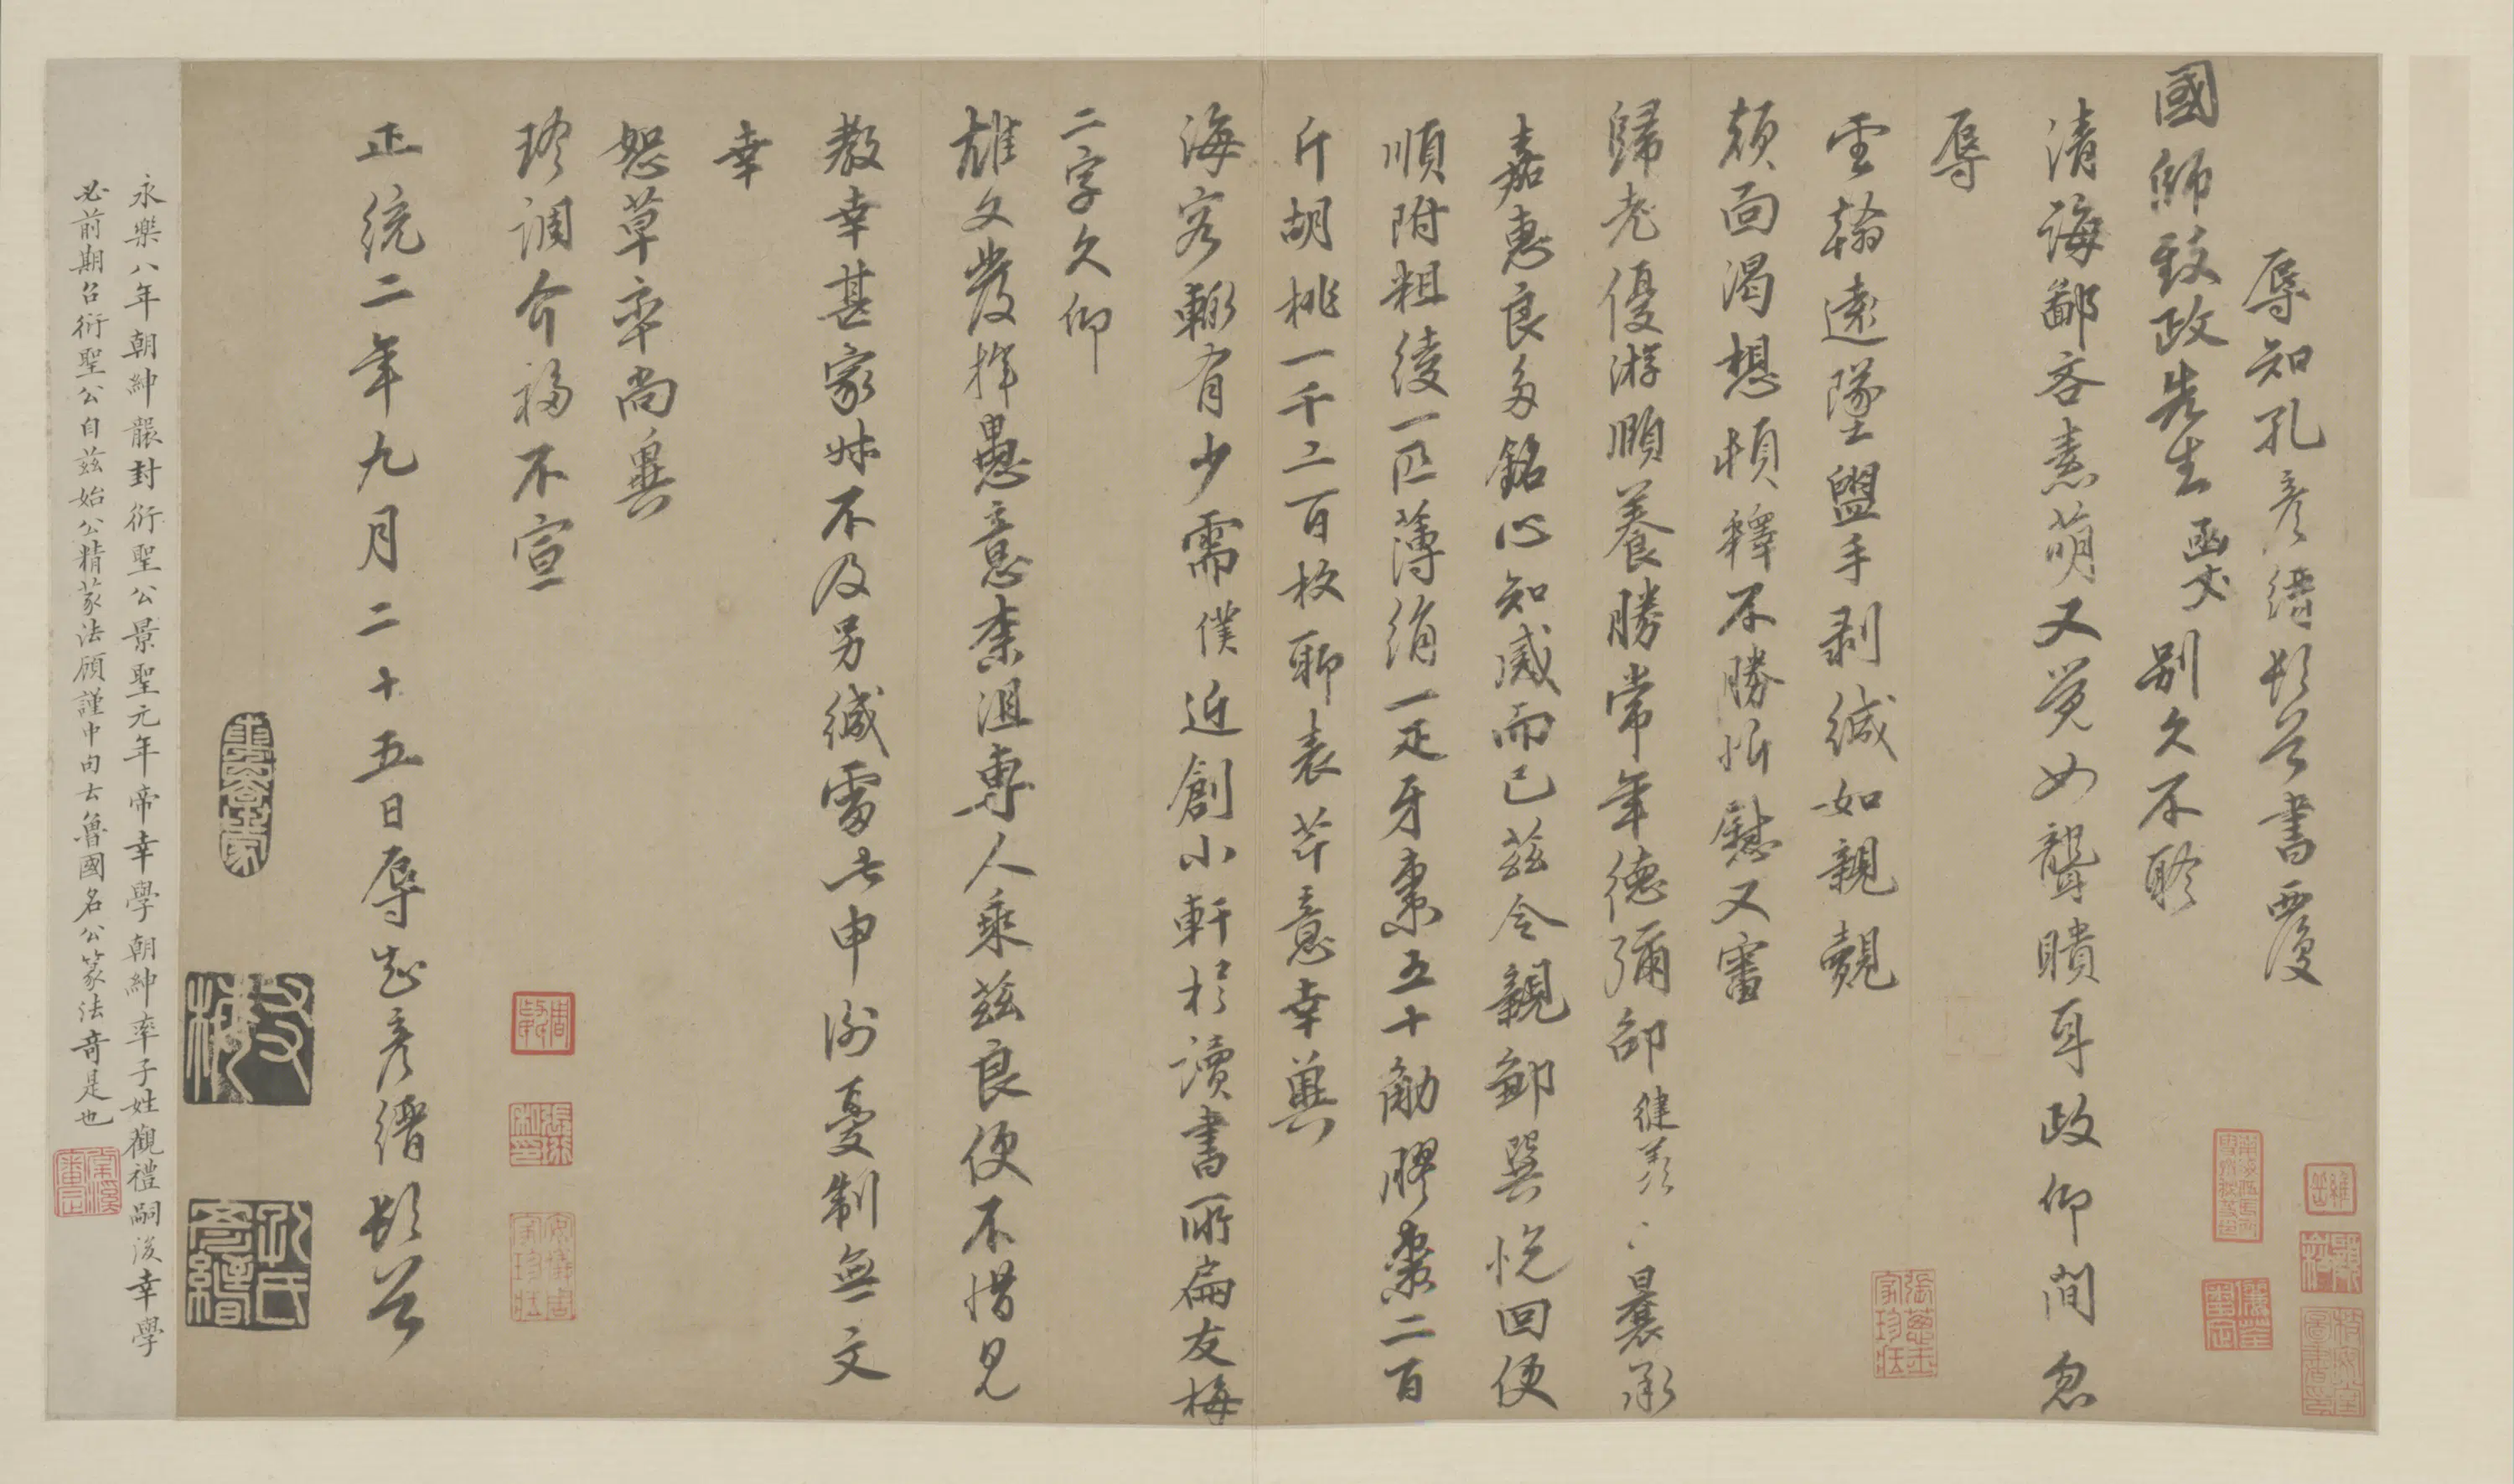 辱知孔彥縉頓首書覆
國師致政先生函丈別久不聆
清誨鄙吝素萌又覺如聾聵耳政仰間忽
辱
雲翰遠墜盥手剥緘如親覿
顏面渴想頓釋不勝忻慰又審
歸老優游順養勝常年德彌邵健羨〻曩承
嘉惠良多銘心知感而已茲令親鄙巽悅回便
順附粗綾一匹薄絹一疋牙棗五十觔膠棗二百
斤胡桃一千二百枚聊表芹意幸冀
海容輒有少需僕近創小軒於讀書所扁友梅
二字久仰
雄文發揮愚意柰沮專人乘茲良便不惜見
教幸甚家妹不及另緘雷此申謝憂制無文
幸
恕草率尚冀
珍調介福不宣
正統二年九月二十五日辱知彥縉頓首
友梅
孔氏彥縉
永樂八年朝紳襲封衍聖公景聖元年帝幸學朝紳率子姓觀禮嗣後幸學
必前期召衍聖公自茲始公精篆法顧謹中句云魯國名公篆法奇是也